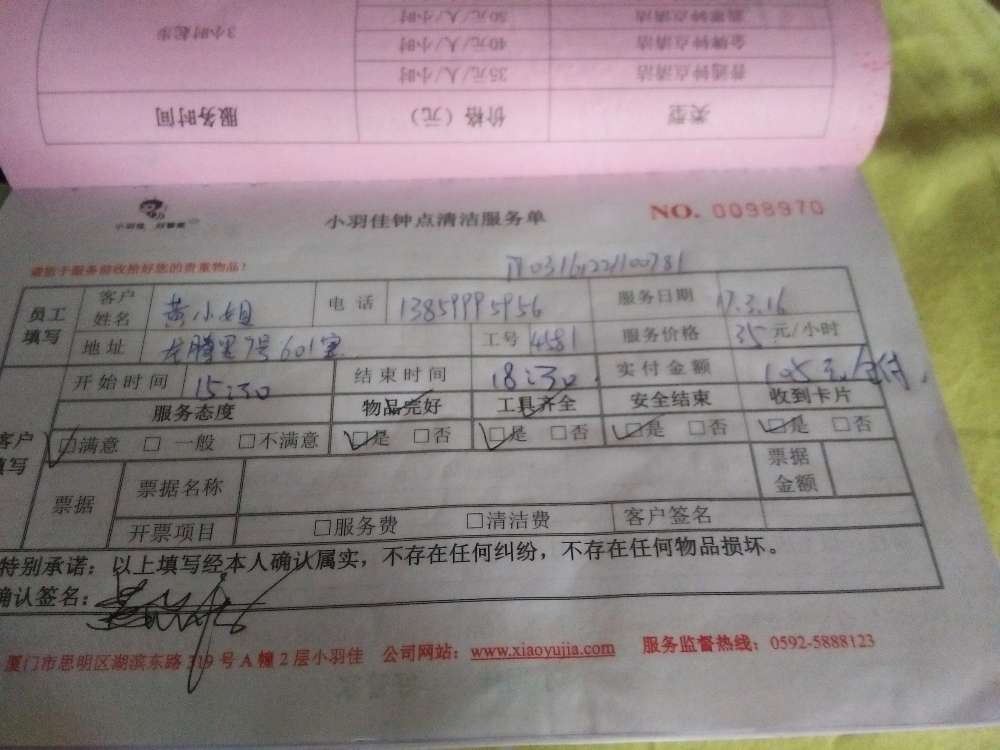 3小时起步
50元/人/小时
金牌钟点清洁 40元/人/小时
普通钟点清洁 35元/人/小时
类型 价格（元） 服务时间
小羽佳
小羽佳钟点清洁服务单
NO. 0098970
请您于服务前收拾好您的贵重物品！
员工填写 客户姓名 黄小姐 电话 13859995956 服务日期 17.3.16
地址 龙腾里7号601室 工号 4581 服务价格 35元/小时
客户填写 开始时间 15:30 结束时间 18:30 实付金额 105元
服务态度 物品完好 工具齐全 安全结束 收到卡片
□满意 □一般 □不满意 □是 □否 □是 □否 □是 □否 □是 □否
票据 票据名称 票据金额
开票项目 □服务费 □清洁费 客户签名
特别承诺：以上填写经本人确认属实，不存在任何纠纷，不存在任何物品损坏。
确认签名：
厦门市思明区湖滨东路319号A幢2层小羽佳 公司网站：www.xiaoyujia.com 服务监督热线：0592-5888123